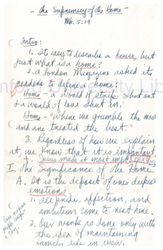 - The Supremacy of the Home -
Mk. 5:19
Intro:
1. It is easy to describe a house, but just what is a home?
2. a London Magazine asked its readers to define a home:
Home - a world of strife shut out & a world of love shut in.
Home - where we grumble the most and are treated the best.
3. Regardless of how we explain it, we know that it is important
I. The Significance of the Home.
A. It is the deposit of our deepest emotions
1. ... pride, affection, and ambition come to rest here.
2. ... people to home only with the idea of maintaining family life in view.